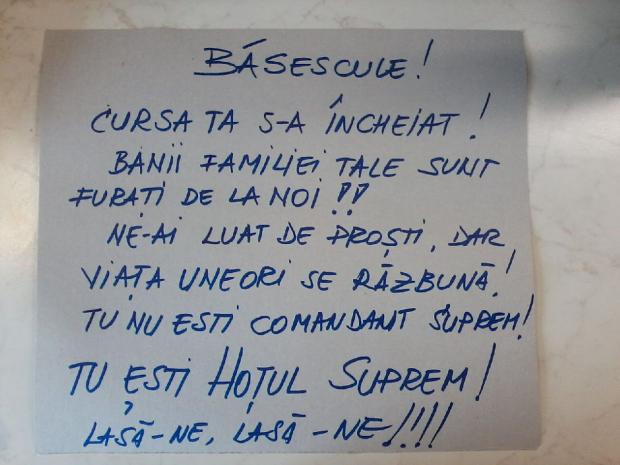 BĂSESCULE!
CURSA TA S-A ÎNCHEIAT!
BANII FAMILIEI TALE SUNT
FURAȚI DE LA NOI!!
NE-AI LUAT DE PROȘTI, DAR
VIAȚA UNEORI SE RĂZBUNĂ!
TU NU EȘTI COMANDANT SUPREM!
TU EȘTI HOȚUL SUPREM!
LASĂ-NE, LASĂ-NE!!!!